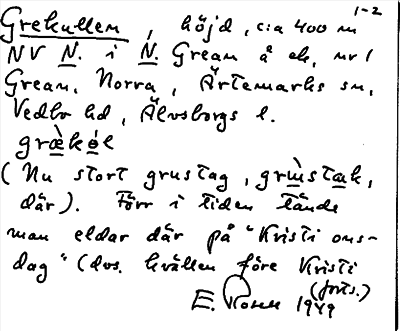 1-2
Grekullen, höjd, c:a 400 m
NV N. i N. Grean å ek, nr 1
Grean, Norra, Ärtemarks sn,
Vedbo hd, Älvsborgs l.
græ̀kọ́l
(Nu stort grustag, grùstak,
där). Förr i tiden tände
man eldar där på "Kristi ons-
dag" (dvs. kvällen före Kristi
(forts.)
E. Rosell 1949